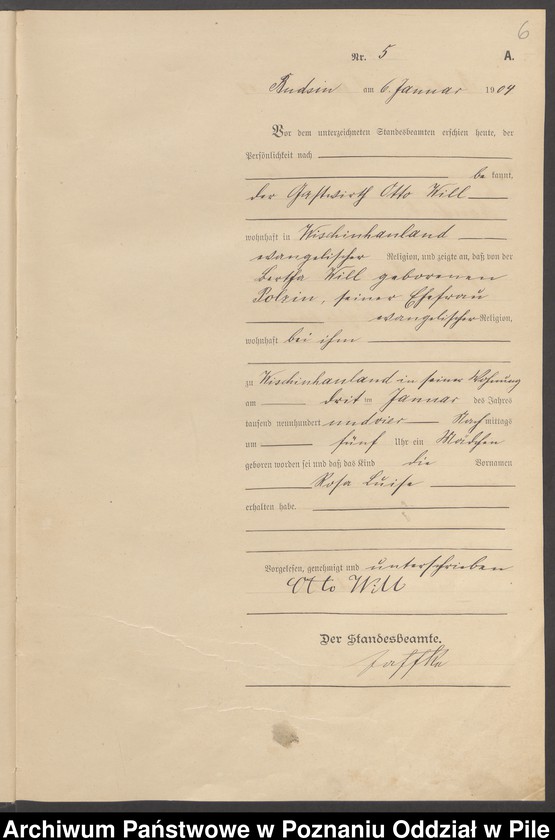 6
Nr. 5 A.
Budsin am 6. Januar 1904
Vor dem unterzeichneten Standesbeamten erschien heute, der
Persönlichkeit nach
be kannt,
der Gastwirth Otto Will
wohnhaft in Wischinhauland
evangelischer Religion, und zeigte an, daß von der
Bertha Will geborenen
Polzin, seiner Ehefrau
evangelischer Religion,
wohnhaft bei ihm
zu Wischinhauland in seiner Wohnung
am drit ten Januar des Jahres
tausend neunhundert undvier Nach mittags
um fünf Uhr ein Mädchen
geboren worden sei und daß das Kind die Vornamen
Rosa Luise
erhalten habe.
Vorgelesen, genehmigt und unterschrieben
Otto Will
Der Standesbeamte.
Jaffke
Archiwum Państwowe w Poznaniu Oddział w Pile